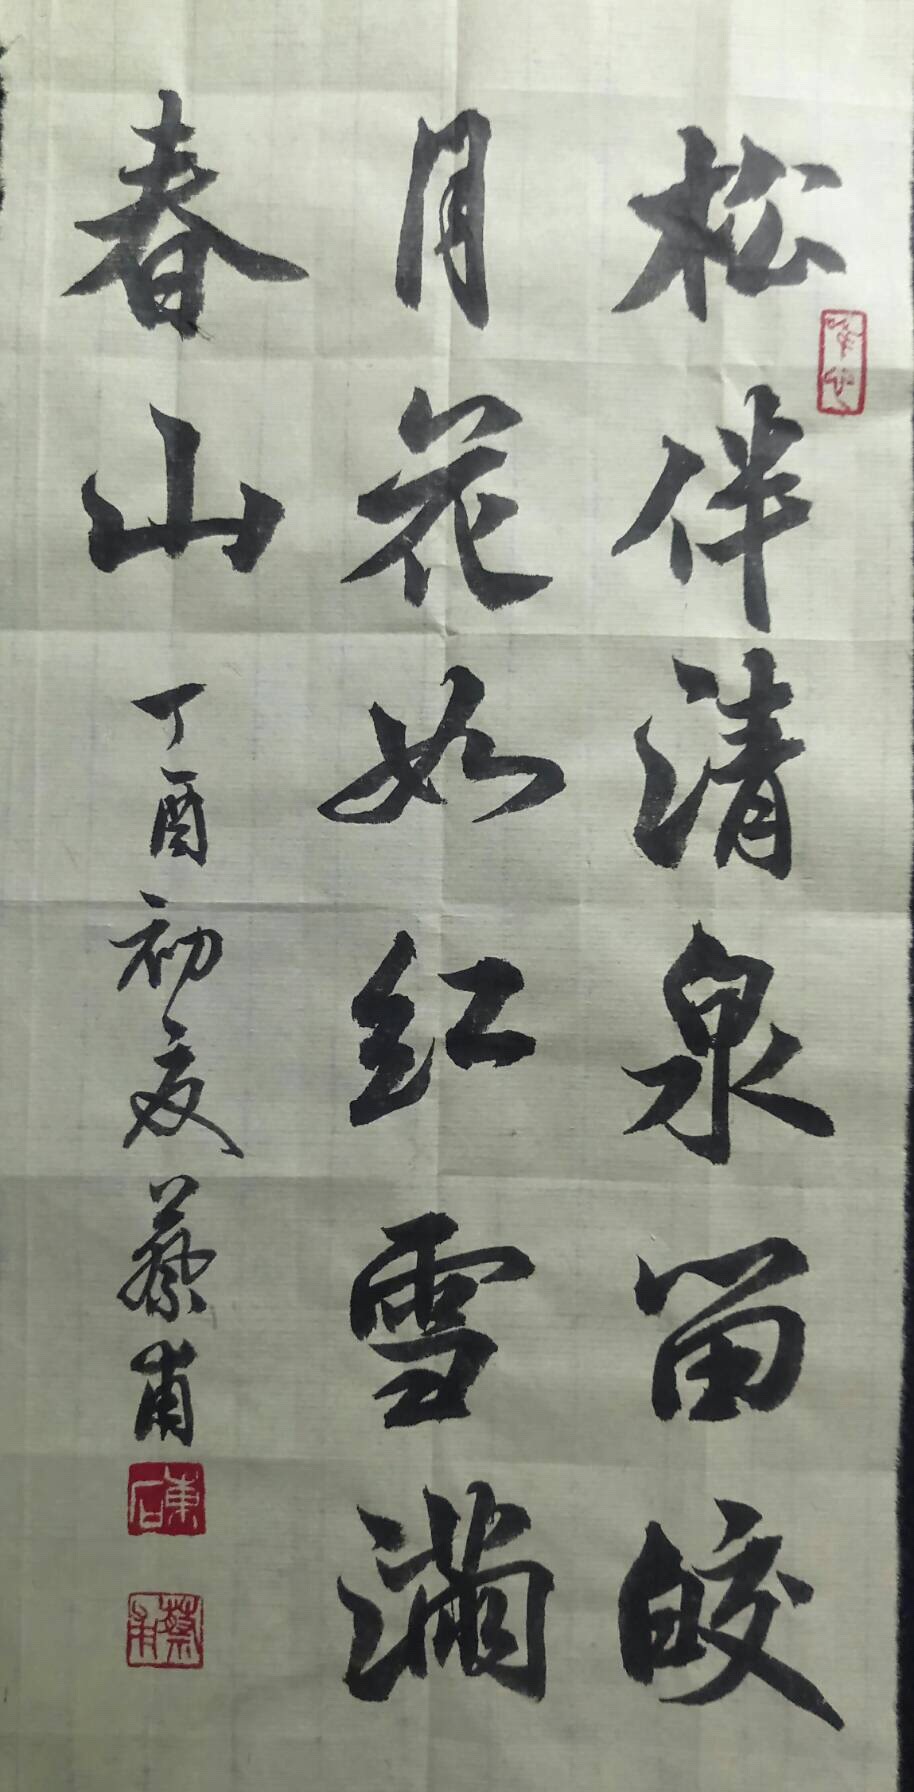 松伴清泉留皎
月花如红雪满
春山
丁酉初夏蔡甫
東石
蔡甫